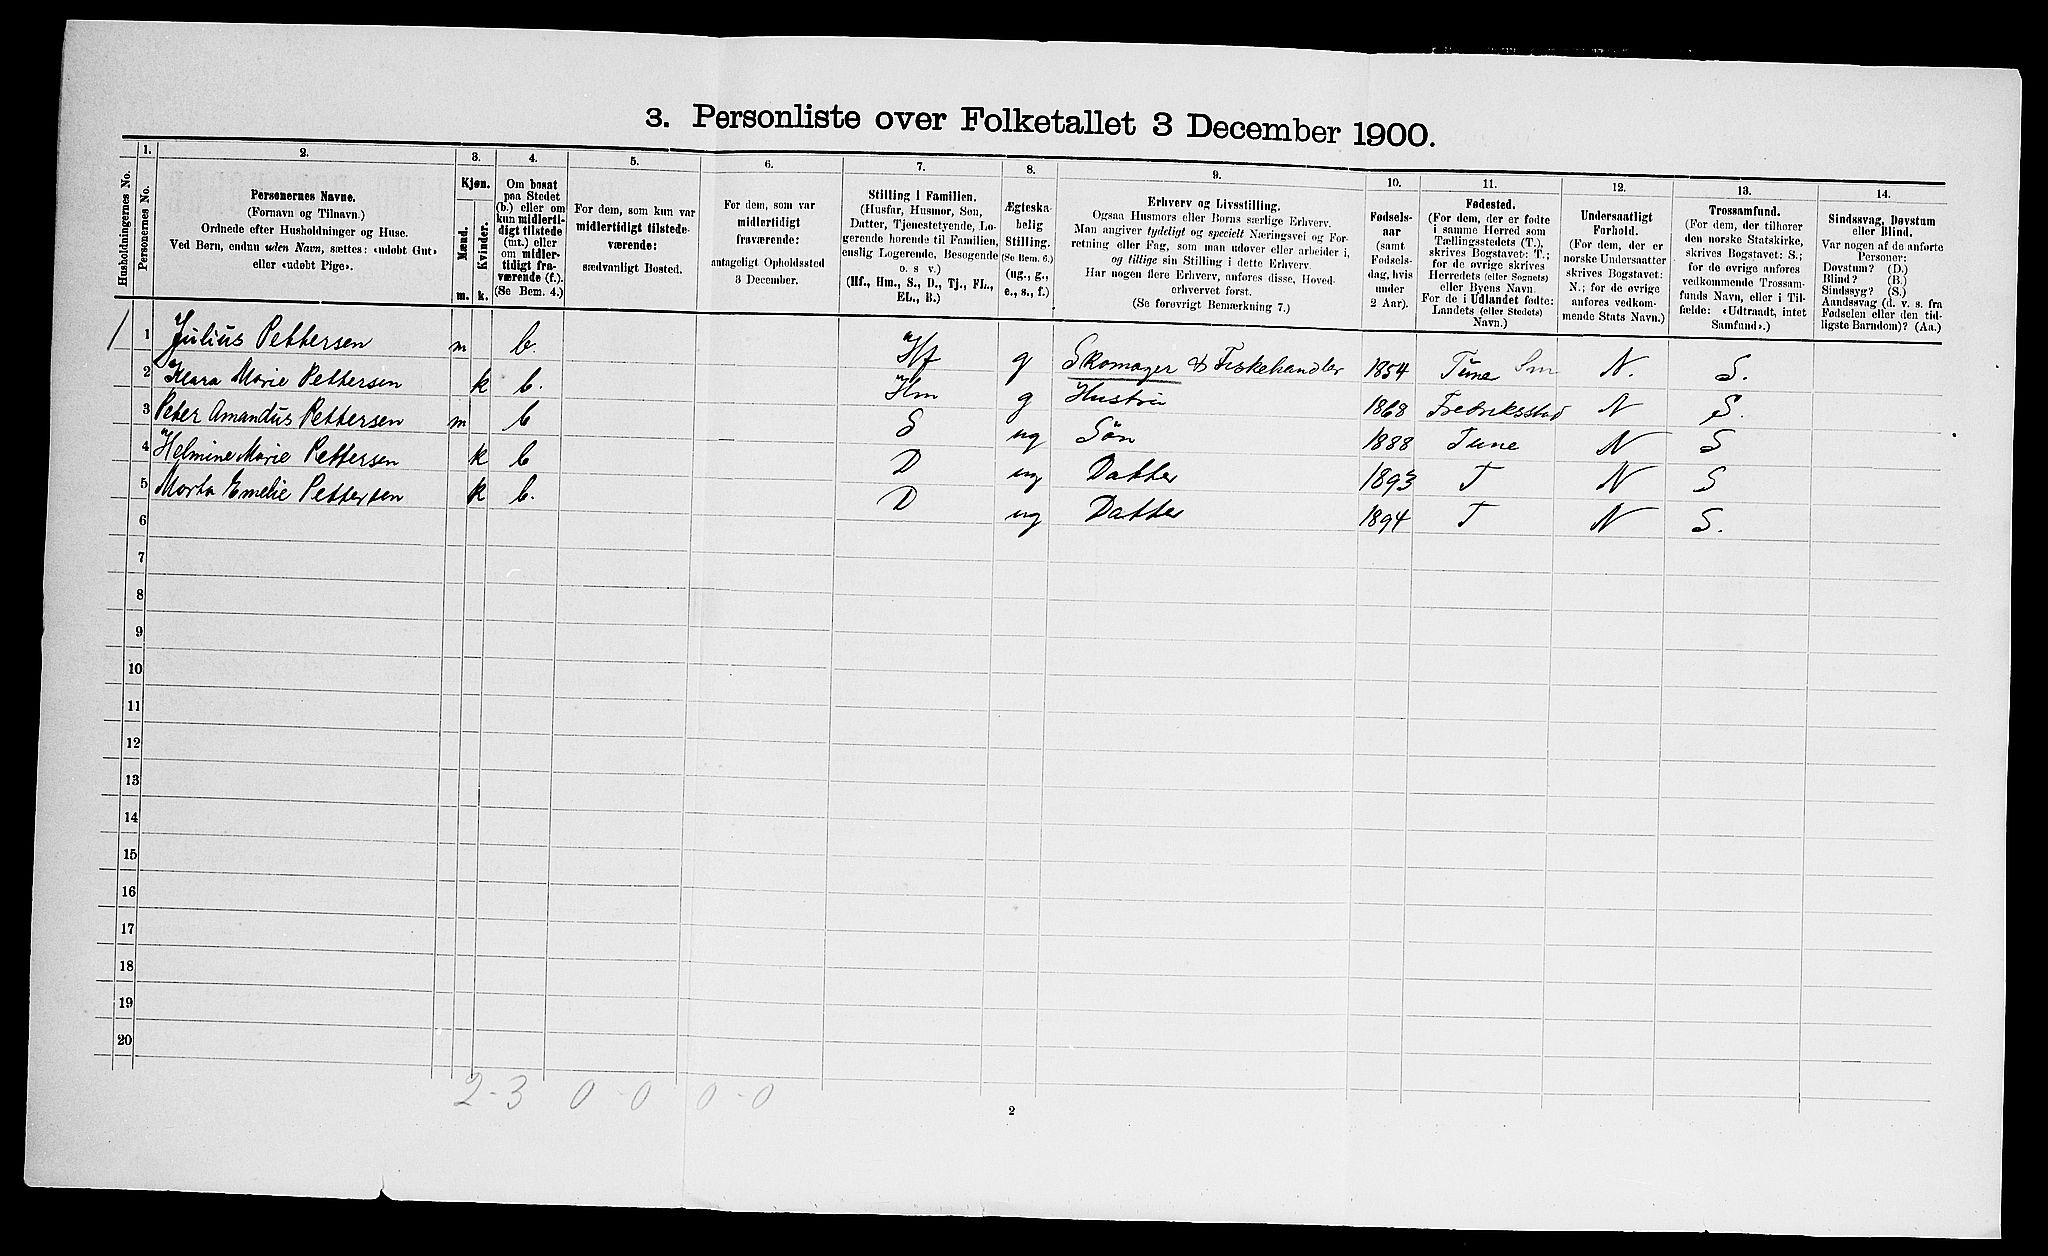 3. Personliste over Folketallet 3 December 1900.
1. 2. 3. 4. 5. 6. 7. 8. 9. 10. 11. 12. 13. 14.
Husholdningernes No.
Personernes No.
Personernes Navne.
(Fornavn og Tilnavn.)
Ordnede efter Husholdninger og Huse.
Ved Børn, endnu uden Navn, sættes: «udøbt Gut»
eller «udøbt Pige».
Kjøn.
Mænd.
Kvinder.
m. k.
Om bosat
paa Stedet
(b.) eller om
kun midlerti-
digt tilstede
(mt.) eller
om midler-
tidigt fra-
værende (f.).
(Se Bem. 4.)
For dem, som kun var
midlertidigt tilstede-
værende:
sædvanligt Bosted.
For dem, som var
midlertidigt
fraværende:
antageligt Opholdssted
3 December.
Stilling i Familien.
(Husfar, Husmor, Søn,
Datter, Tjenestetyende, Lo-
gerende hørende til Familien,
enslig Logerende, Besøgende
o. s v.)
(Hf., Hm., S., D., Tj., FL.,
EL., B.)
Ægteska-
belig
Stilling.
(Se Bem. 6.)
(ug., g.,
e., s., f.)
Erhverv og Livsstilling.
Ogsaa Husmors eller Børns særlige Erhverv.
Man angiver tydeligt og specielt Næringsvei og For-
retning eller Fag, som man udøver eller arbeider i,
og tillige sin Stilling i dette Erhverv.
Har nogen flere Erhverv, anføres disse, Hoved-
erhvervet først.
(Se forøvrigt Bemærkning 7.)
Fødsels-
aar
(samt
Fødsels-
dag, hvis
under
2 Aar).
Fødested.
(For dem, der er fødte
i samme Herred som
Tællingsstedets (T.),
skrives Bogstavet: T.;
for de øvrige skrives
Herredets (eller Sognets)
eller Byens Navn.
For de i Udlandet fødte:
Landets (eller Stedets)
Navn.)
Undersaatligt
Forhold.
(For dem, der er
norske Undersaatter
skrives Bogstavet:
N.; for de øvrige
anføres vedkom-
mende Stats Navn.)
Trossamfund.
(For dem, der tilhører
den norske Statskirke,
skrives Bogstavet: S.;
for de øvrige anføres
vedkommende Trossam-
funds Navn, eller i Til-
fælde: «Udtraadt, intet
Samfund».)
Sindssvag, Døvstum
eller Blind.
Var nogen af de anførte
Personer:
Døvstum? (D.)
Blind? (B.)
Sindssyg? (S.)
Aandssvag (d. v. s. fra
Fødselen eller den tid-
ligste Barndom)? (Aa.)
1 1 Julius Pettersen m b. Hf g Skomager & Fiskehandler 1854 Tune Sm N. S.
2 Klara Marie Pettersen k b. Hm g Hustru 1868 Fredriksstad N S.
3 Peter Amandus Pettersen m b S ug Søn 1888 Tune N S
4 Helmine Marie Pettersen k b D ug Datter 1893 T N S
5 Marta Emelie Pettersen k b. D ug Datter 1894 T N S.
6
7
8
9
10
11
12
13
14
15
16
17
18
19
20
2-3 0-0 0-0
2